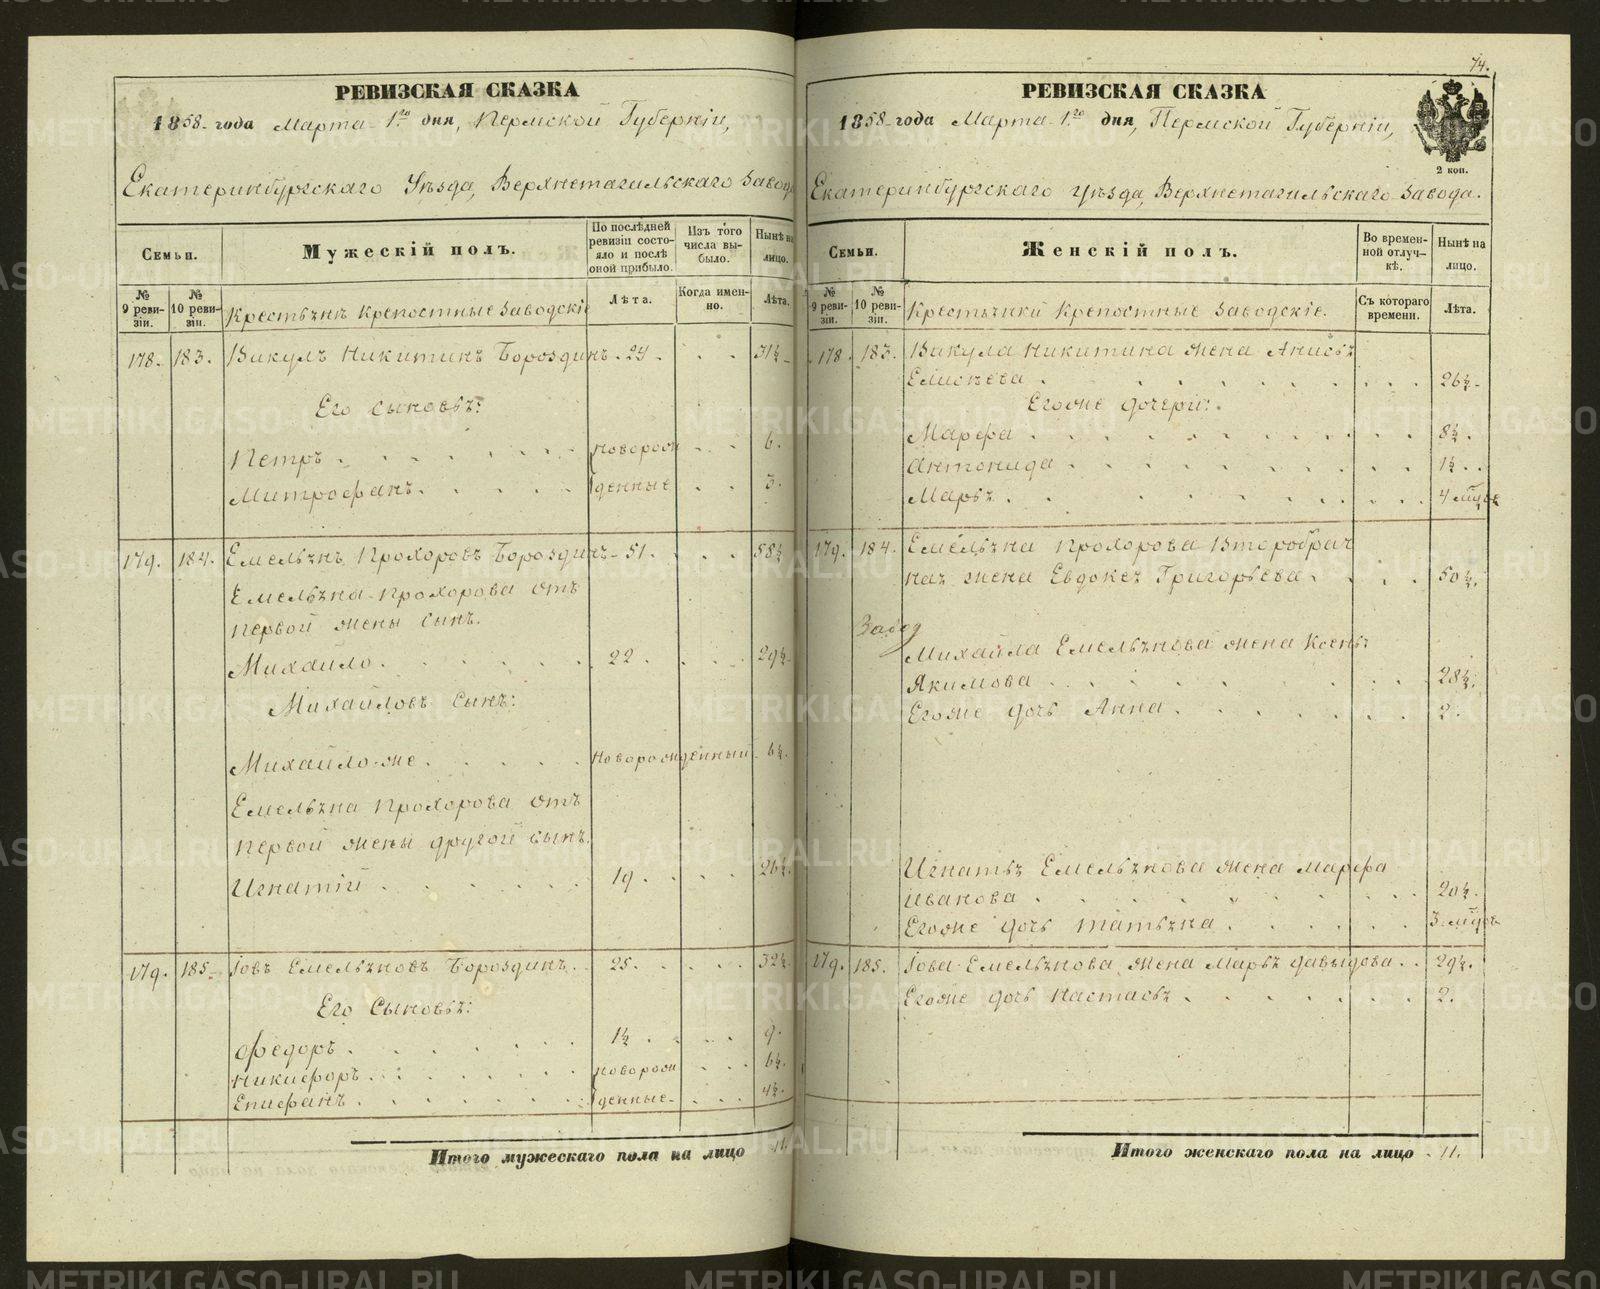 РЕВИЗСКАЯ СКАЗКА
1858 года Марта 1го дня, Пермской Губерніи,
Екатеринбургскаго Уѣзда, Верхнетагильскаго Завода
Семьи.
Мужескій полъ.
По послѣдней ревизіи состояло и послѣ оной прибыло.
Изъ того числа выбыло.
Нынѣ на лицо.
№ 9 ревизіи.
№ 10 ревизіи.
Крестьянъ крепостные Заводскіе
Лѣта.
Когда именно.
Лѣта.
178. 183. Викулъ Никитинъ Бороздинъ. 24. 31½
Его сыновья:
Петръ новорож 6.
Митрофанъ денные 3.
179. 184. Емельянъ Прохоровъ Бороздинъ 51. 58½
Емельяна Прохорова отъ
первой жены сынъ.
Михайло 22. 29½
Михайловъ сынъ:
Михайло же новорожденный 6½.
Емельяна Прохорова отъ
первой жены другой сынъ.
Игнатій 19. 26½.
179. 185. Іовъ Емельяновъ Бороздинъ 25. 32½
Его Сыновья:
Федоръ 1½ 9.
Никифоръ новорож 6½.
Епифанъ денные 4½.
Итого мужескаго пола на лицо 11.
74.
РЕВИЗСКАЯ СКАЗКА
1858 года Марта 1го дня, Пермской Губерніи,
2 коп.
Екатеринбургскаго уѣзда, Верхнетагильскаго Завода.
Семьи.
Женскій полъ.
Во временной отлучкѣ.
Нынѣ на лицо.
№ 9 ревизіи.
№ 10 ревизіи.
Крестьянки Крепостные Заводскіе.
Съ котораго времени.
Лѣта.
178. 183. Викула Никитина жена Анисья
Елисѣева 26½
Егоже дочери:
Марфа 8½.
Антонида 1½
Марья 4 мѣсяц
179. 184. Емельяна Прохорова Второбрач
ная жена Евдокея Григорьева 50½.
Завод
Михайла Емельянова жена Ксенья
Якимова 28½.
Егоже дочь Анна 2.
Игнатья Емельянова жена Марфа
Иванова 20½.
Егоже дочь Татьяна 3 мѣсяц
179. 185. Іова Емельянова жена Марья Давыдова 29½.
Егоже дочь Настасья 2.
Итого женскаго пола на лицо 11.
METRIKI.GASO-URAL.RU